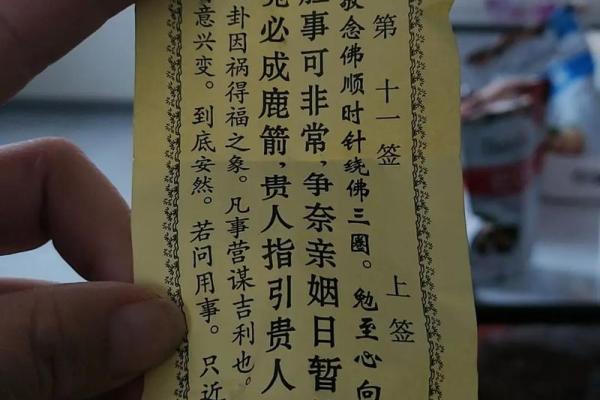 第 十一签 上签
念佛顺时针绕佛三圈。勉至心向
胜事可非常,争奈亲姻日暂
必成鹿箭,贵人指引贵人
卦因祸得福之象。凡事营谋吉利也。
意兴变。到底安然。若问用事。只近